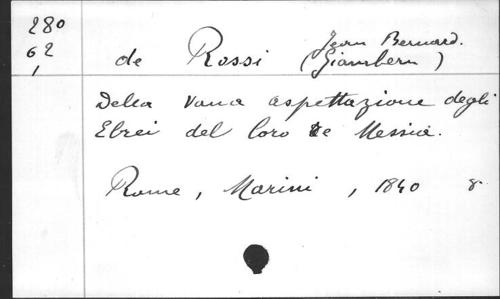 280
62
1
de Rossi Jean Bernard.
(Giambern)
Della vana aspettazione degli
Ebrei del loro Re Messia.
Rome, Marini, 1840 8°